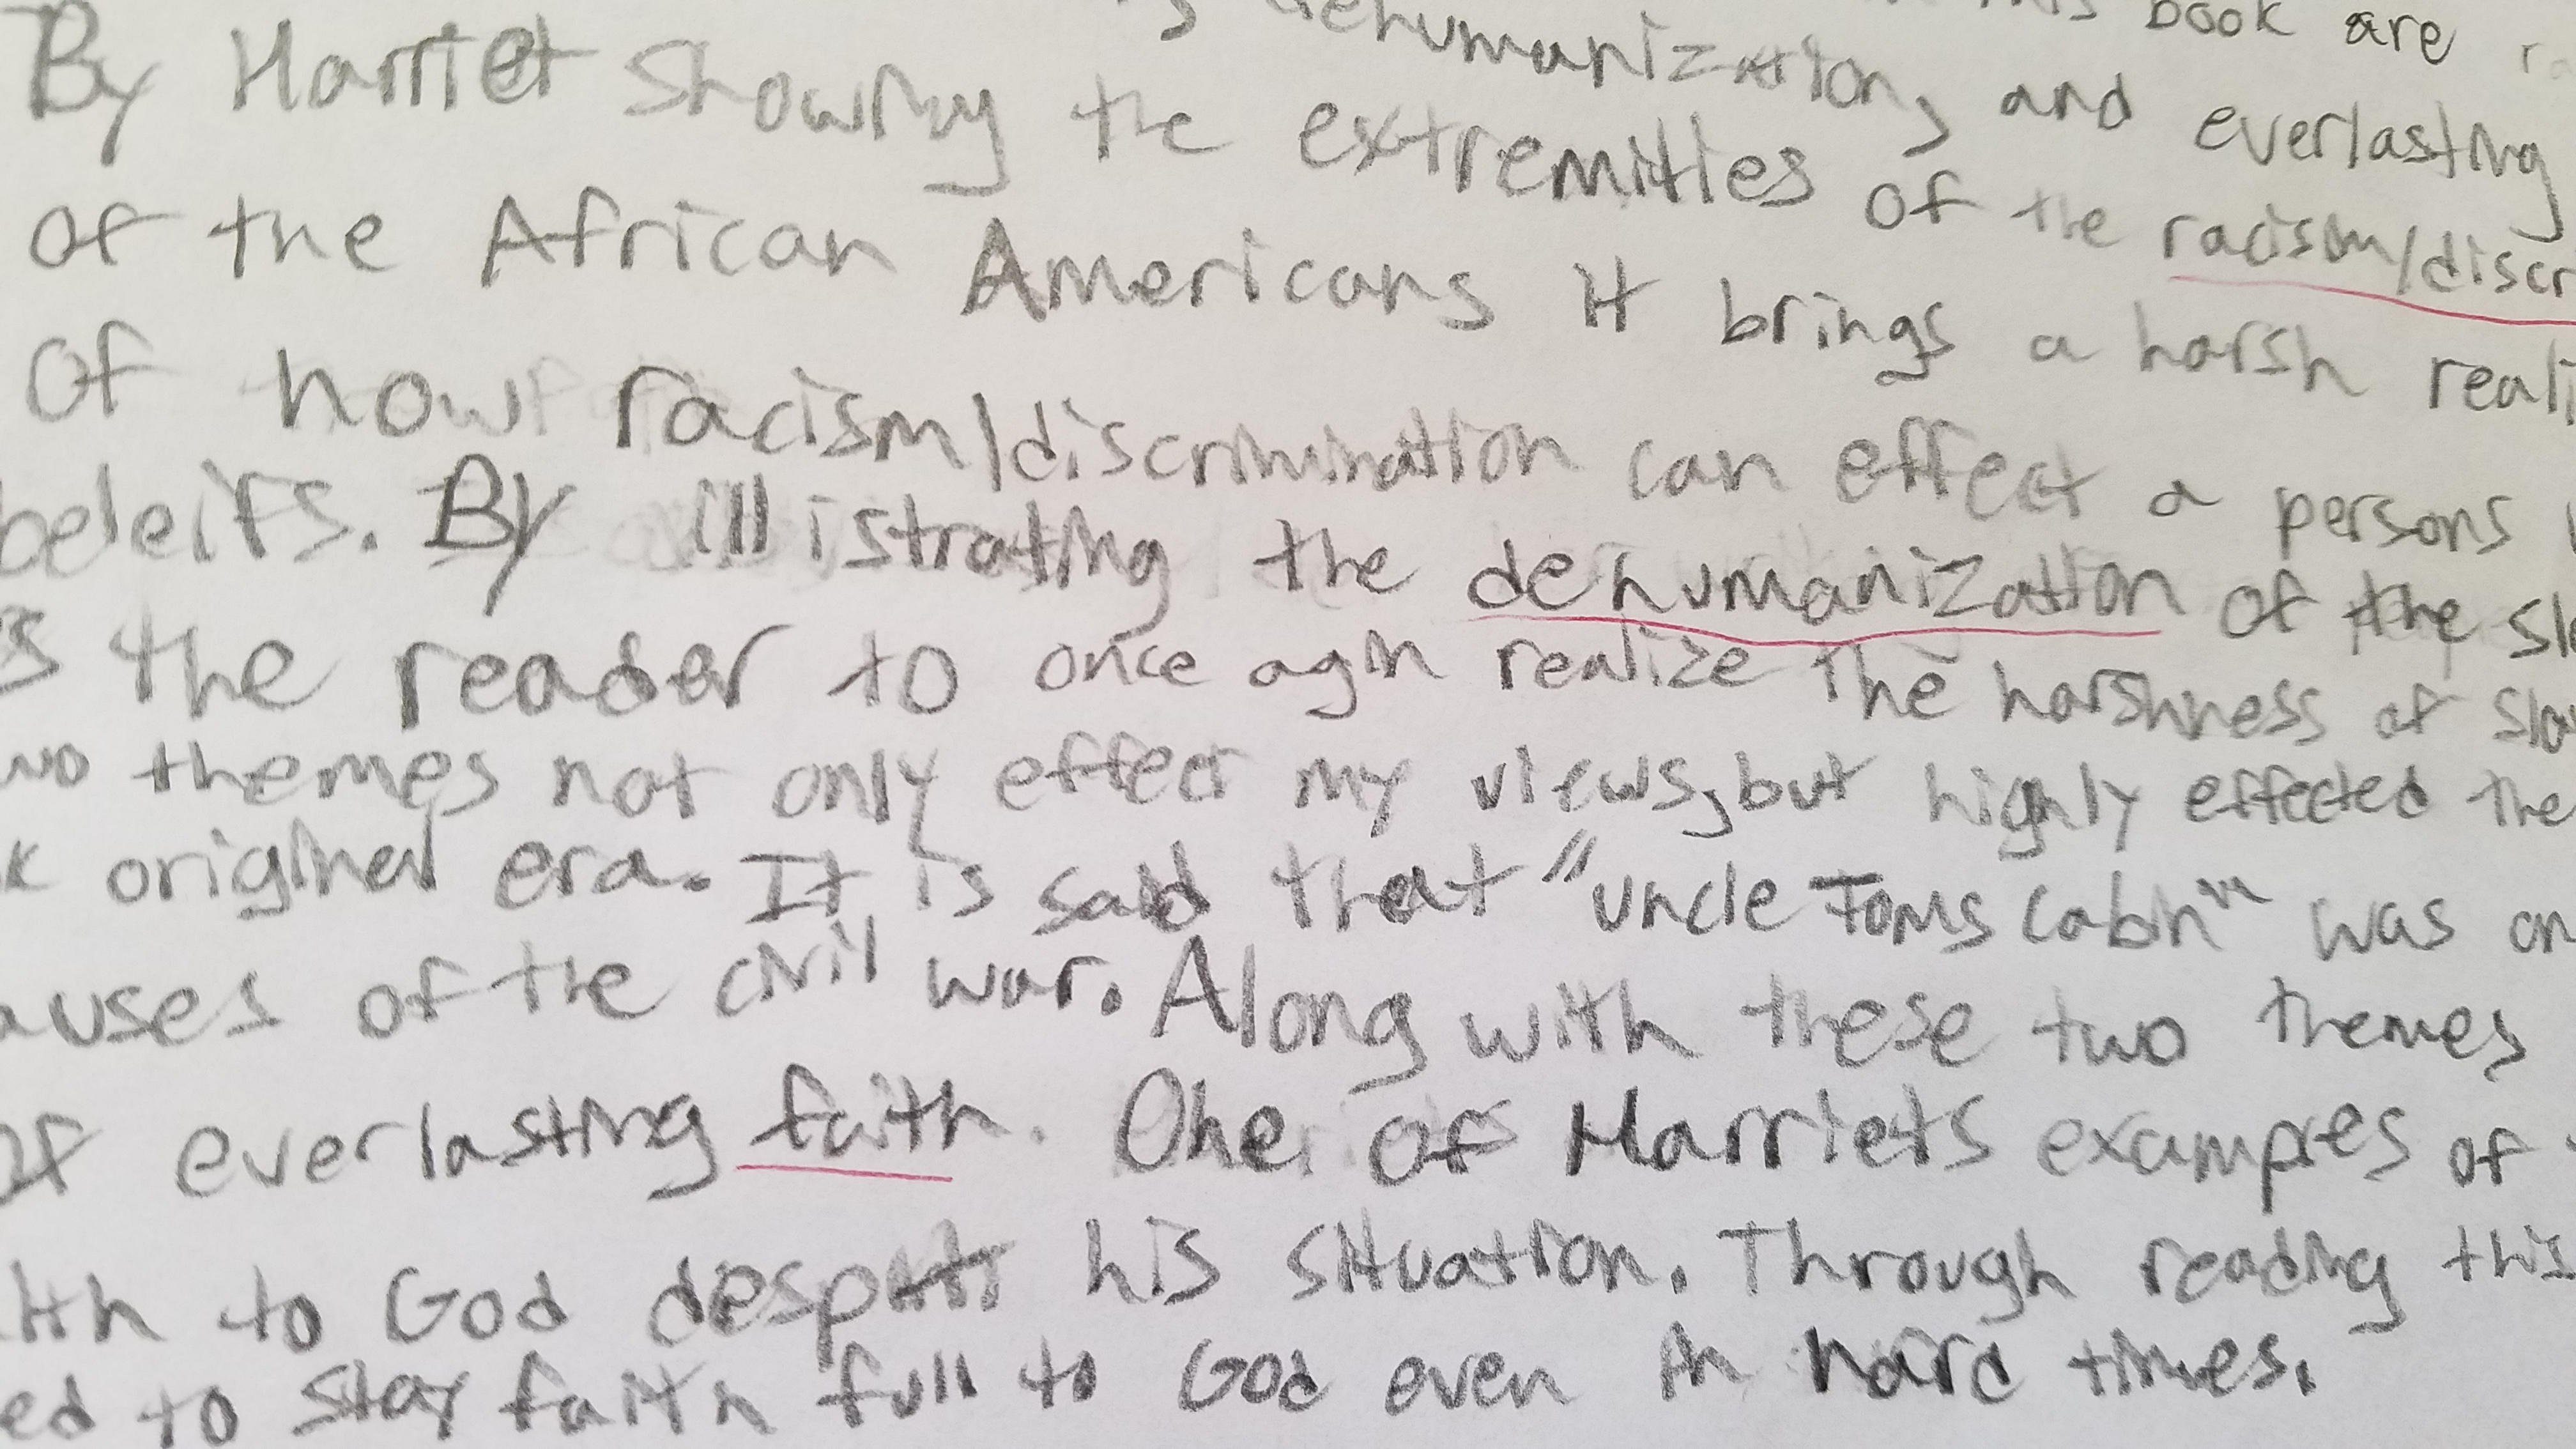 dehumanization, and everlasting
book are
By Harriet showing the extremities of the racism/discr
of the African Americans it brings a harsh reali
of how racism/discrimination can effect a persons
beleifs. By illistrating the dehumanization of the sl
s the reader to once agin realize the harshness of sla
wo themes not only effect my views, but highly effected the
k original era. It is said that "uncle Toms Cabin" was on
auses of the civil war. Along with these two themes
of everlasting faith. One of Harriets examples of
ith to God despite his situation. Through reading this
ed to stay faith full to God even in hard times.